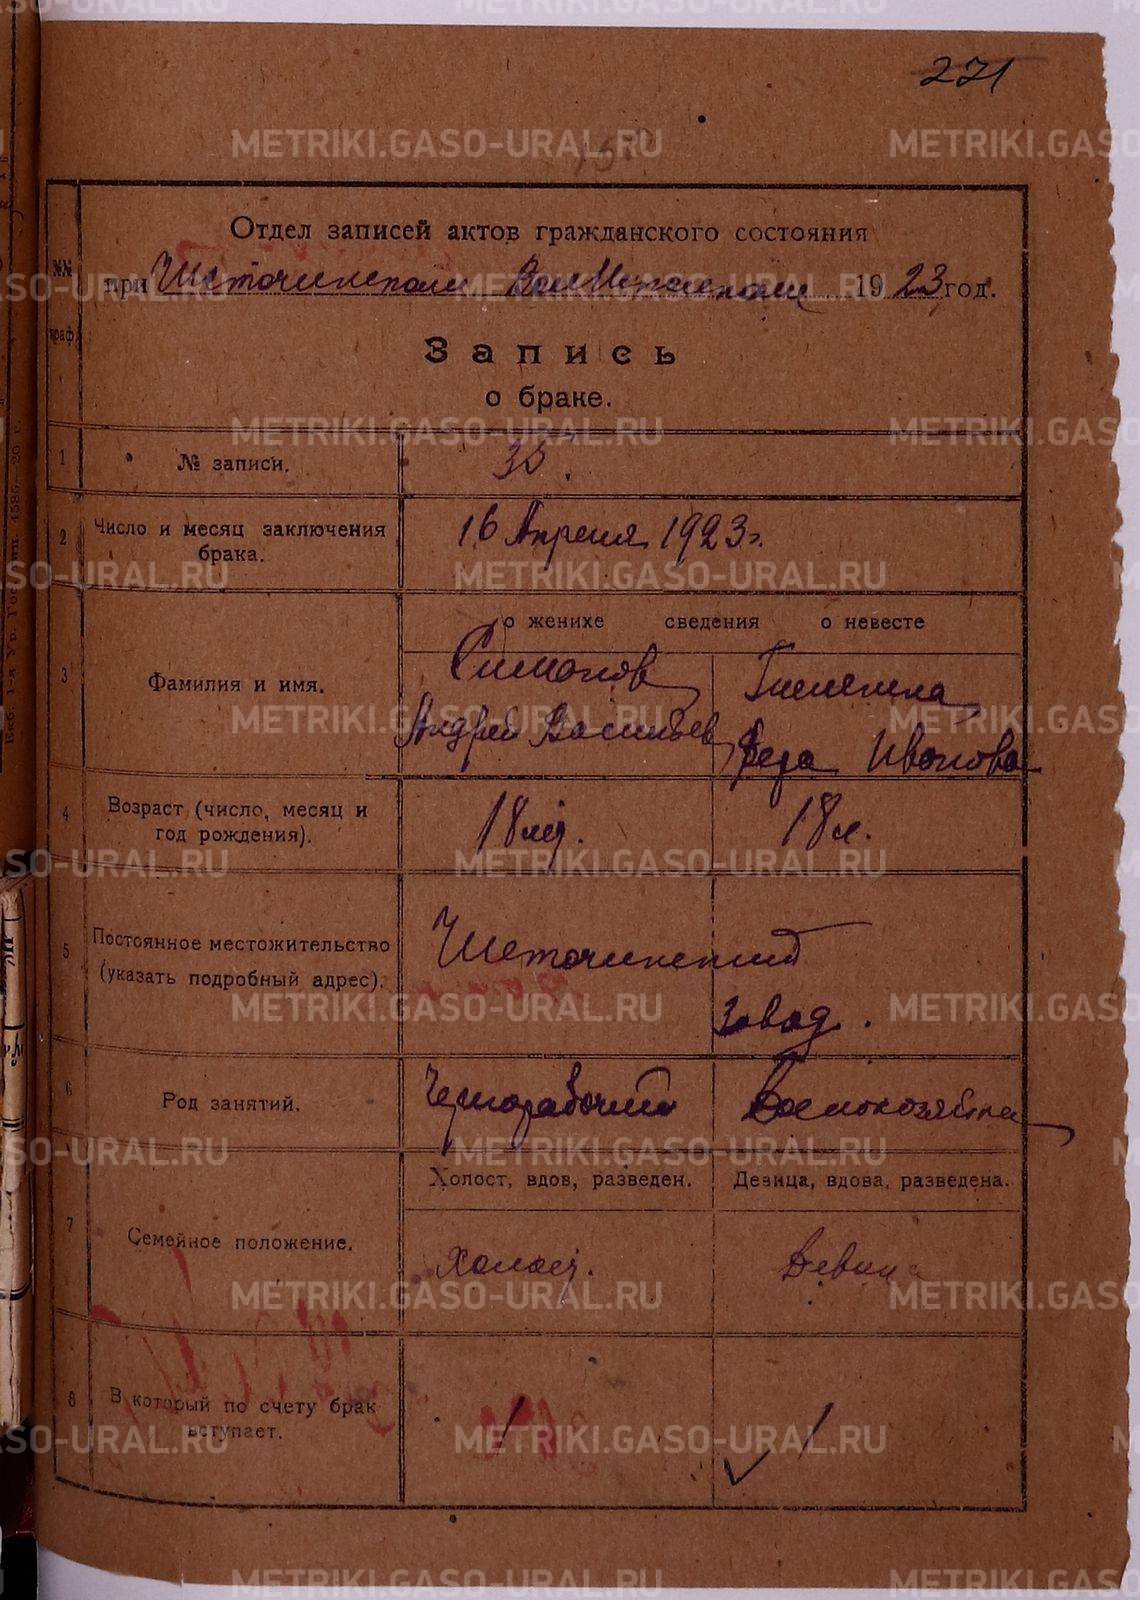 271
Отдел записей актов гражданского состояния
№№ граф.
при Висимском 1923 год.
Запись
о браке.
1 № записи. 35
2 Число и месяц заключения брака. 16 Апреля 1923 г.
о женихе сведения о невесте
3 Фамилия и имя.
Симонов
Андрей Васильев
Иванова
4 Возраст (число, месяц и
год рождения). 18 лет. 18 л.
5 Постоянное местожительство
(указать подробный адрес).
завод.
6 Род занятий. Чернорабочий Домохозяйка
Холост, вдов, разведен. Девица, вдова, разведена.
7 Семейное положение.
Холост. Девица
8 В который по счету брак
вступает. 1 1
METRIKI.GASO-URAL.RU